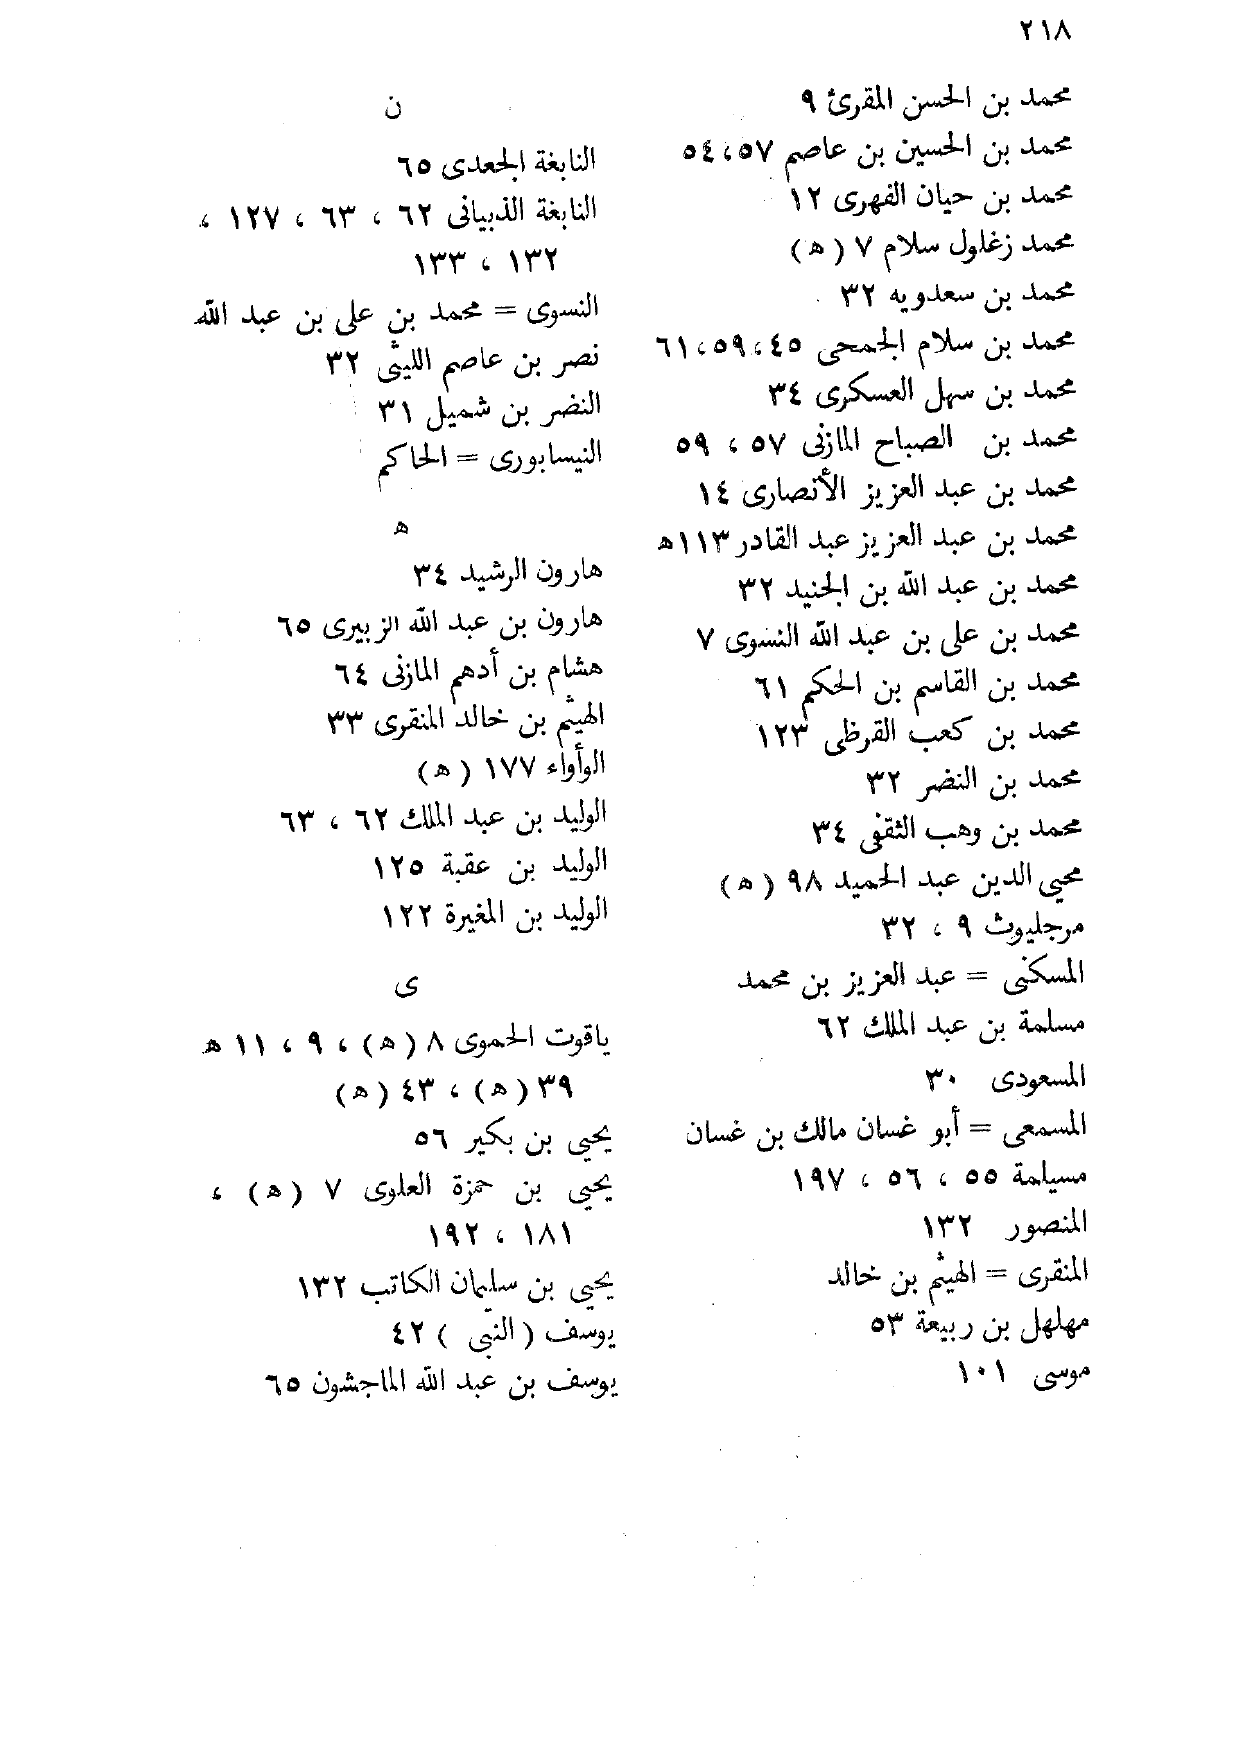 ٢١٨
محمد بن الحسن المقرئ ٩
محمد بن الحسين بن عاصم ٥٧،٥٤
محمد بن حيان الفهرى ١٢
محمد زغلول سلام ٧ (ه)
محمد بن سعدويه ٣٢
محمد بن سلام الجمحى ٤٥،٥٩،٦١
محمد بن سهل العسكرى ٣٤
محمد بن الصباح المازنى ٥٧ ، ٥٩
محمد بن عبد العزيز الأنصارى ١٤
محمد بن عبد العزيز عبد القادر ١١٣ه
محمد بن عبد الله بن الجنيد ٣٢
محمد بن على بن عبد الله النسوى ٧
محمد بن القاسم بن الحكم ٦١
محمد بن كعب القرظى ١٢٣
محمد بن النضر ٣٢
محمد بن وهب الثقفى ٣٤
محيى الدين عبد الحميد ٩٨ (ه)
مرجليوث ٩ ، ٣٢
المسكنى = عبد العزيز بن محمد
مسلمة بن عبد الملك ٦٢
المسعودى ٣٠
المسمعى = أبو غسان مالك بن غسان
مسيلمة ٥٥ ، ٥٦ ، ١٩٧
المنصور ١٣٢
المنقرى = الهيثم بن خالد
مهلهل بن ربيعة ٥٣
موسى ١٠١
ن
النابغة الجعدى ٦٥
النابغة الذبيانى ٦٢ ، ٦٣ ، ١٢٧ ،
١٣٢ ، ١٣٣
النسوى = محمد بن على بن عبد الله
نصر بن عاصم الليثى ٣٢
النضر بن شميل ٣١
النيسابورى = الحاكم
ه
هارون الرشيد ٣٤
هارون بن عبد الله الزبيرى ٦٥
هشام بن أدهم المازنى ٦٤
الهيثم بن خالد المنقرى ٣٣
الوأواء ١٧٧ (ه)
الوليد بن عبد الملك ٦٢ ، ٦٣
الوليد بن عقبة ١٢٥
الوليد بن المغيرة ١٢٢
ى
ياقوت الحموى ٨ (ه) ، ٩ ، ١١ ه
٣٩ (ه) ، ٤٣ (ه)
يحيى بن بكير ٥٦
يحيى بن حمزة العلوى ٧ (ه) ،
١٨١ ، ١٩٢
يحيى بن سليمان الكاتب ١٣٢
يوسف ( النبى ) ٤٢
يوسف بن عبد الله الماجشون ٦٥